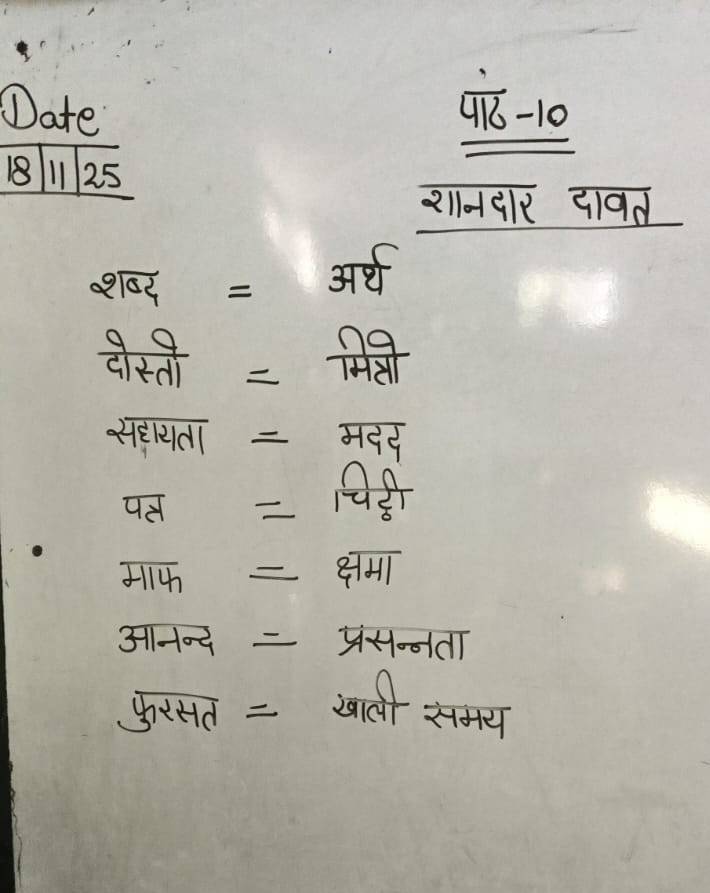 Date
18/11/25
पाठ-10
शानदार दावत
शब्द = अर्थ
दोस्ती = मित्री
सहायता = मदद
पत्र = चिट्ठी
माफ = क्षमा
आनन्द = प्रसन्नता
फुरसत = खाली समय